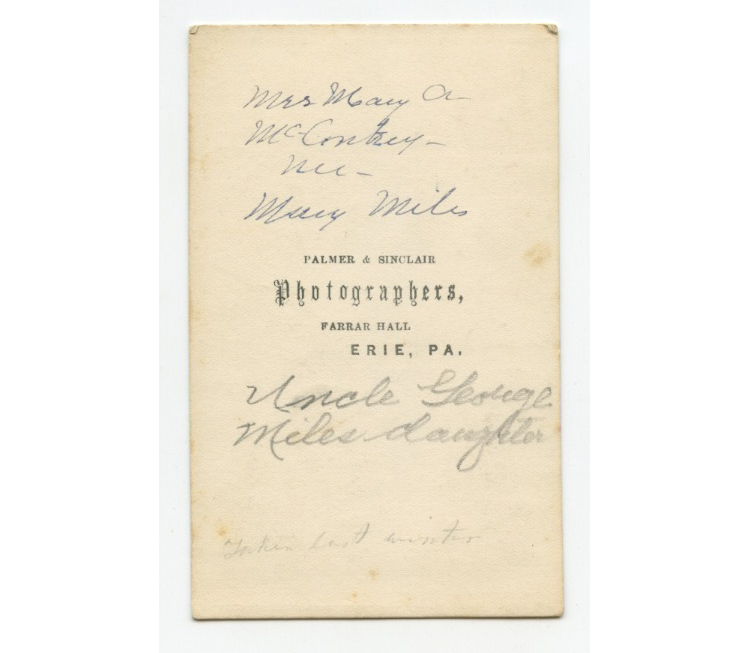 Mrs Mary A-
McConkey-
nee-
Mary Miles
PALMER & SINCLAIR
Photographers,
FARRAR HALL
ERIE, PA.
Uncle George
Miles daughter
Taken last winter